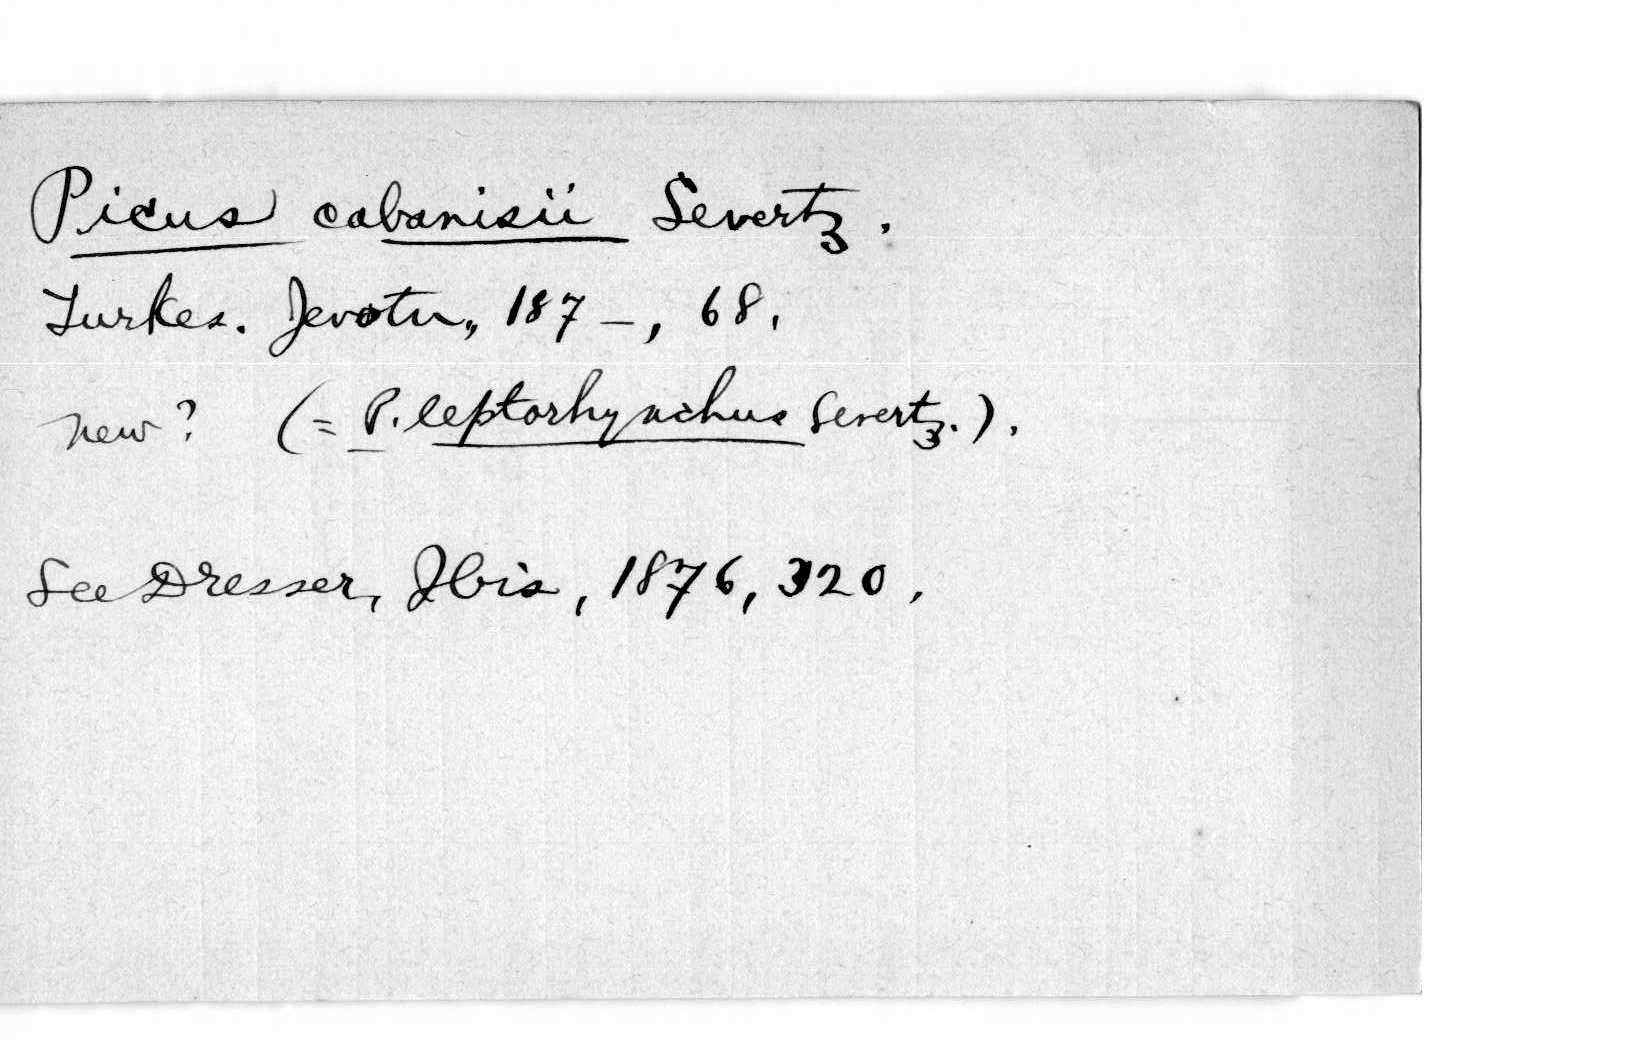 Picus cabanisii Severtz.
Turkes. Jevotn., 187-, 68.
new? (= P. leptorhynchus Severtz.).
See Dresser, Ibis, 1876, 320.